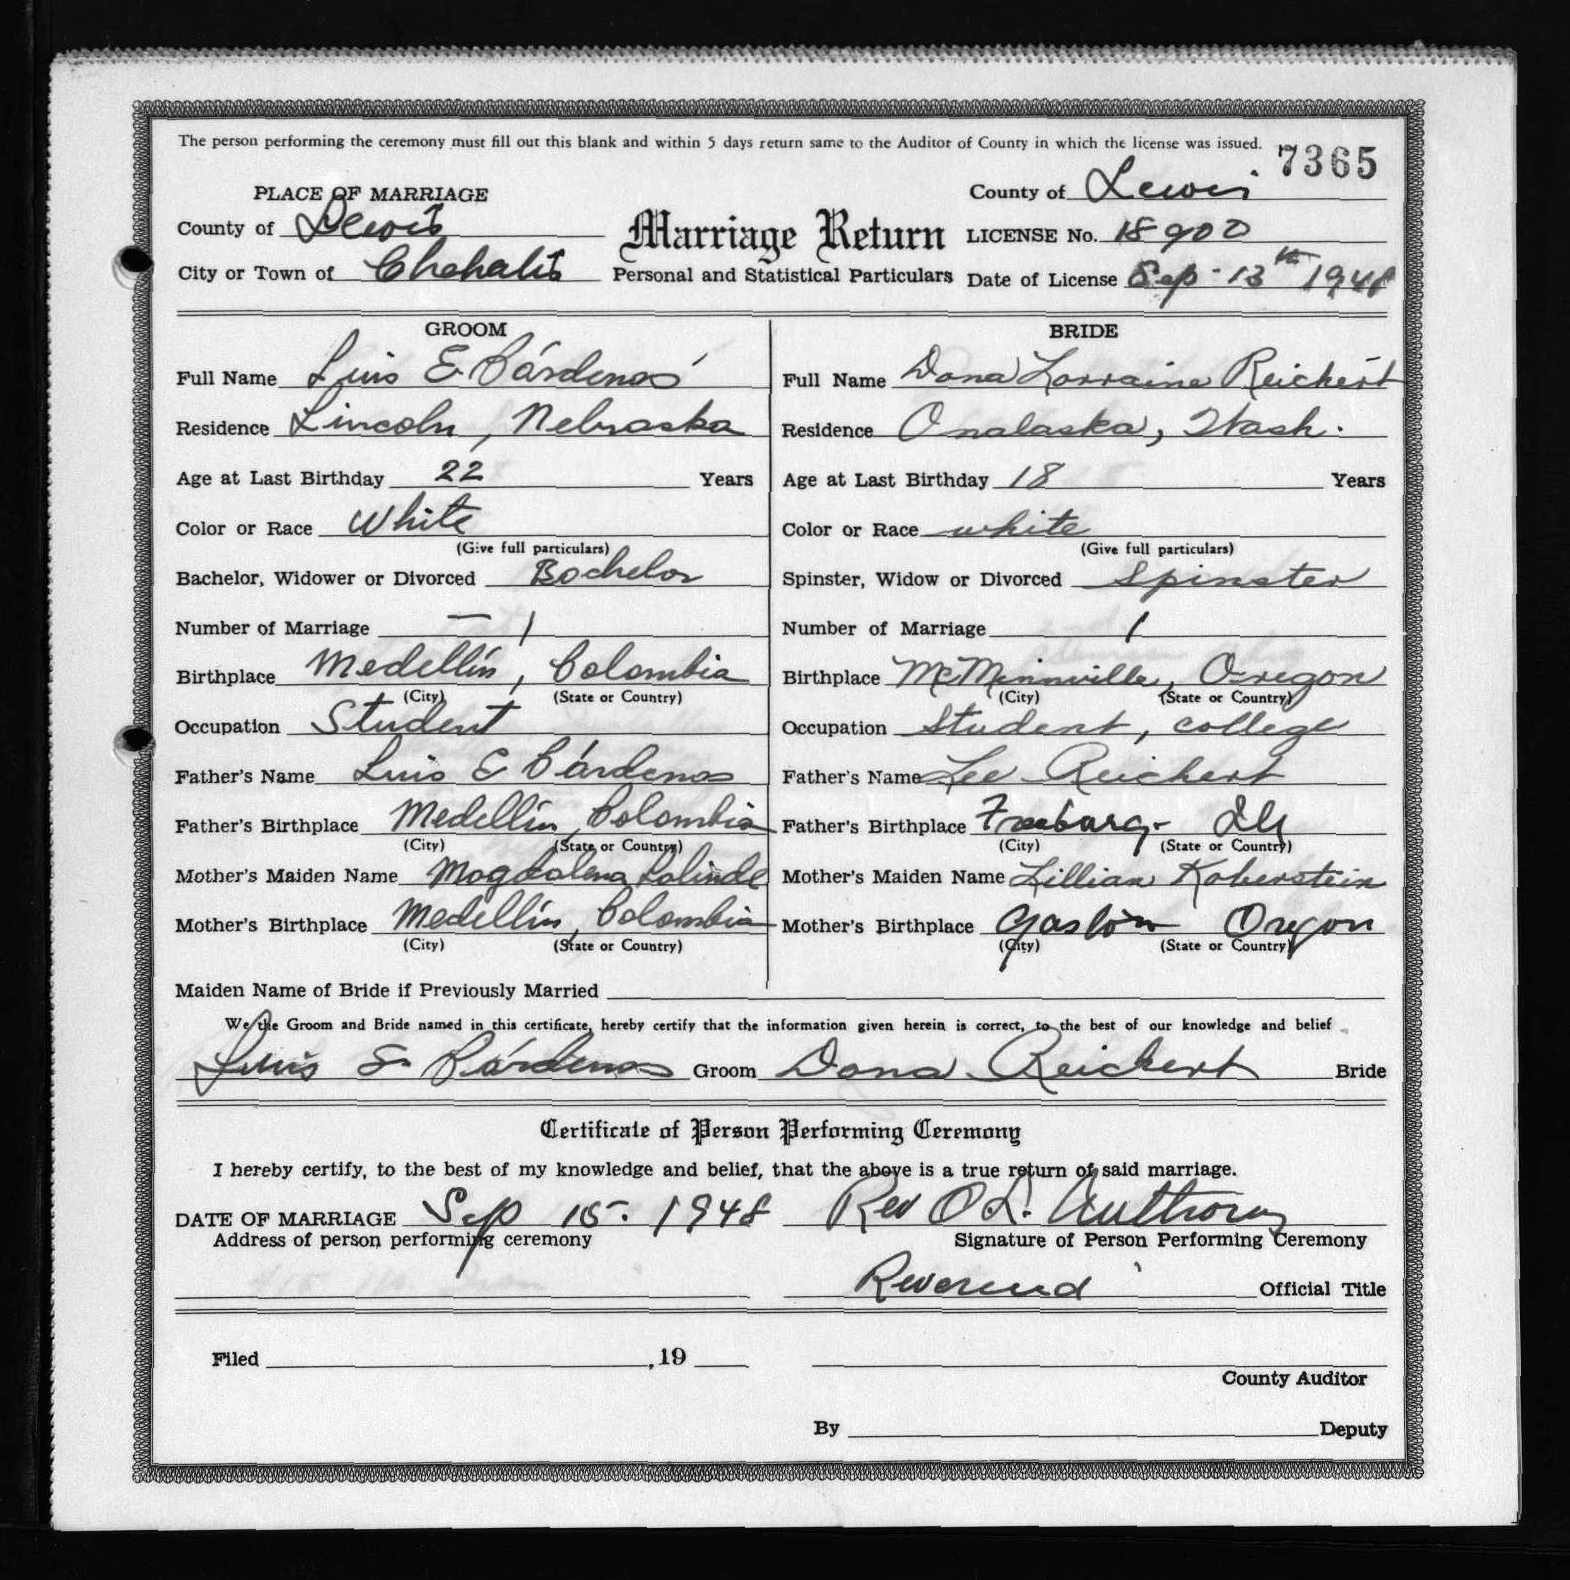 The person performing the ceremony must fill out this blank and within 5 days return same to the Auditor of County in which the license was issued.
7365
PLACE OF MARRIAGE
County of Lewis
City or Town of Chehalis
Marriage Return
Personal and Statistical Particulars
County of Lewis
LICENSE No. 18900
Date of License Sep - 13th 1948
GROOM
Full Name Luis E Cárdenas
Residence Lincoln, Nebraska
Age at Last Birthday 22 Years
Color or Race White
(Give full particulars)
Bachelor, Widower or Divorced Bachelor
Number of Marriage — 1
Birthplace Medellín, Colombia
(City) (State or Country)
Occupation Student
Father's Name Luis E Cárdenas
Father's Birthplace Medellín, Colombia
(City) (State or Country)
Mother's Maiden Name Magdalena Lalinde
Mother's Birthplace Medellín, Colombia
(City) (State or Country)
BRIDE
Full Name Dona Lorraine Reichert
Residence Onalaska, Wash.
Age at Last Birthday 18 Years
Color or Race white
(Give full particulars)
Spinster, Widow or Divorced Spinster
Number of Marriage 1
Birthplace McMinnville, Oregon
(City) (State or Country)
Occupation Student, college
Father's Name Lee Reichert
Father's Birthplace Freeburg - Ill
(City) (State or Country)
Mother's Maiden Name Lillian Koberstein
Mother's Birthplace Gaston Oregon
(City) (State or Country)
Maiden Name of Bride if Previously Married
We the Groom and Bride named in this certificate, hereby certify that the information given herein is correct, to the best of our knowledge and belief.
Luis E Cárdenas Groom Dona Reichert Bride
Certificate of Person Performing Ceremony
I hereby certify, to the best of my knowledge and belief, that the above is a true return of said marriage.
DATE OF MARRIAGE Sep 15. 1948 Rev O L. Anthony
Address of person performing ceremony Signature of Person Performing Ceremony
Reverend Official Title
Filed ,19
County Auditor
By Deputy